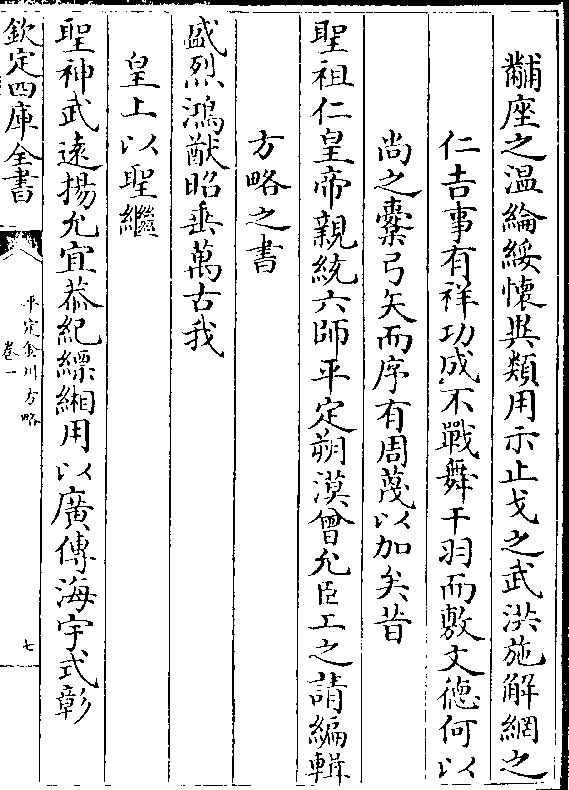 黼座之溫綸綏懷異類用示止戈之武洪施解網之
仁吉事有祥功成不戰舞干羽而敷文德何以
尚之櫜弓矢而序有周蔑以加矣昔
聖祖仁皇帝親統六師平定朔漠曾允臣工之請編輯
方略之書
盛烈鴻猷昭垂萬古我
皇上以聖繼
聖神武遠揚允宜恭紀縹緗用以廣傳海宇式彰
欽定四庫全書
平定金川方略
卷一
七